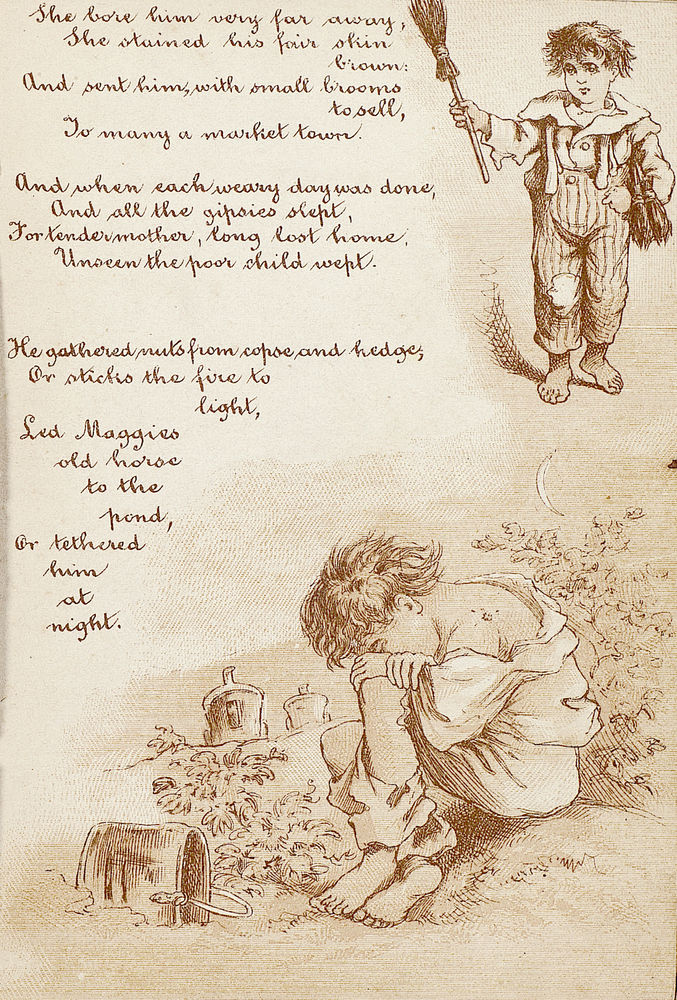 She bore him very far away,
She stained his fair skin
brown:
And sent him, with small brooms
to sell,
To many a market town.
And when each weary day was done,
And all the gipsies slept,
For tender mother, long lost home,
Unseen the poor child wept.
He gathered nuts from copse and hedge,
Or sticks the fire to
light,
Led Maggies
old horse
to the
pond,
Or tethered
him
at
night.